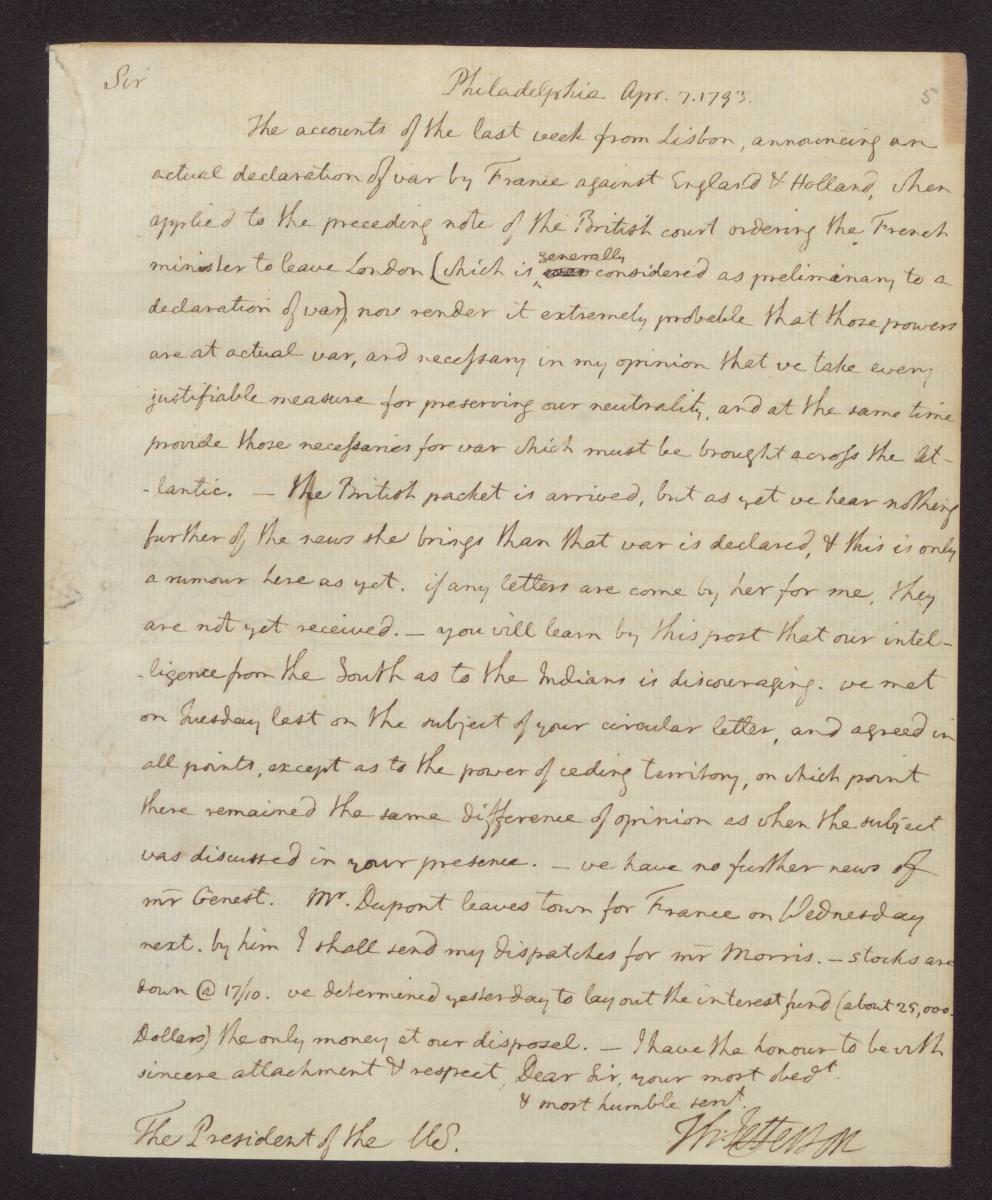 Sir Philadelphia Apr. 7. 1793.
5
The accounts of the last week from Lisbon, announcing an
actual declaration of war by France against England & Holland, when
applied to the preceding note of the British court ordering the French
minister to leave London (which is generally considered as preliminary to a
declaration of war), now render it extremely probable that those powers
are at actual war, and necessary in my opinion that we take every
justifiable measure for preserving our neutrality, and at the same time
provide those necessaries for war which must be brought across the At-
-lantic. — the British packet is arrived, but as yet we hear nothing
further of the news she brings than that war is declared, & this is only
a rumour here as yet. if any letters are come by her for me, they
are not yet received. — you will learn by this post that our intel-
-ligence from the South as to the Indians is discouraging. we met
on Tuesday last on the subject of your circular letter, and agreed in
all points, except as to the power of ceding territory, on which point
there remained the same difference of opinion as when the subject
was discussed in your presence. — we have no further news of
mr Genest. Mr. Dupont leaves town for France on Wednesday
next. by him I shall send my dispatches for mr Morris. — stocks are
down @ 17/10. we determined yesterday to lay out the interest fund (about 25,000.
Dollars) the only money at our disposal. — I have the honour to be with
sincere attachment & respect, Dear Sir, your most obedt.
& most humble servt.
The President of the US. Th: Jefferson